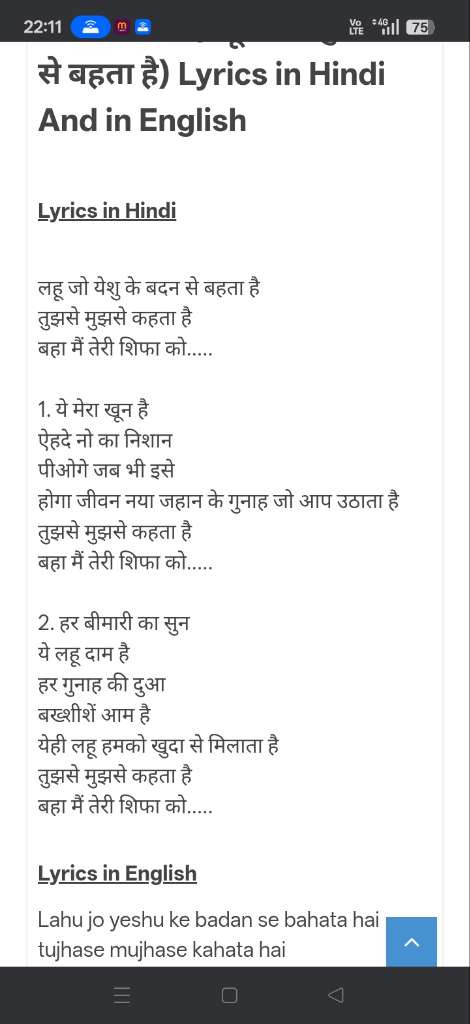 22:11
Vo LTE
4G
75
से बहता है) Lyrics in Hindi
And in English
Lyrics in Hindi
लहू जो येशु के बदन से बहता है
तुझसे मुझसे कहता है
बहा मैं तेरी शिफा को.....
1. ये मेरा खून है
ऐहदे नो का निशान
पीओगे जब भी इसे
होगा जीवन नया जहान के गुनाह जो आप उठाता है
तुझसे मुझसे कहता है
बहा मैं तेरी शिफा को.....
2. हर बीमारी का सुन
ये लहू दाम है
हर गुनाह की दुआ
बख्शीशें आम है
येही लहू हमको खुदा से मिलाता है
तुझसे मुझसे कहता है
बहा मैं तेरी शिफा को.....
Lyrics in English
Lahu jo yeshu ke badan se bahata hai
tujhase mujhase kahata hai